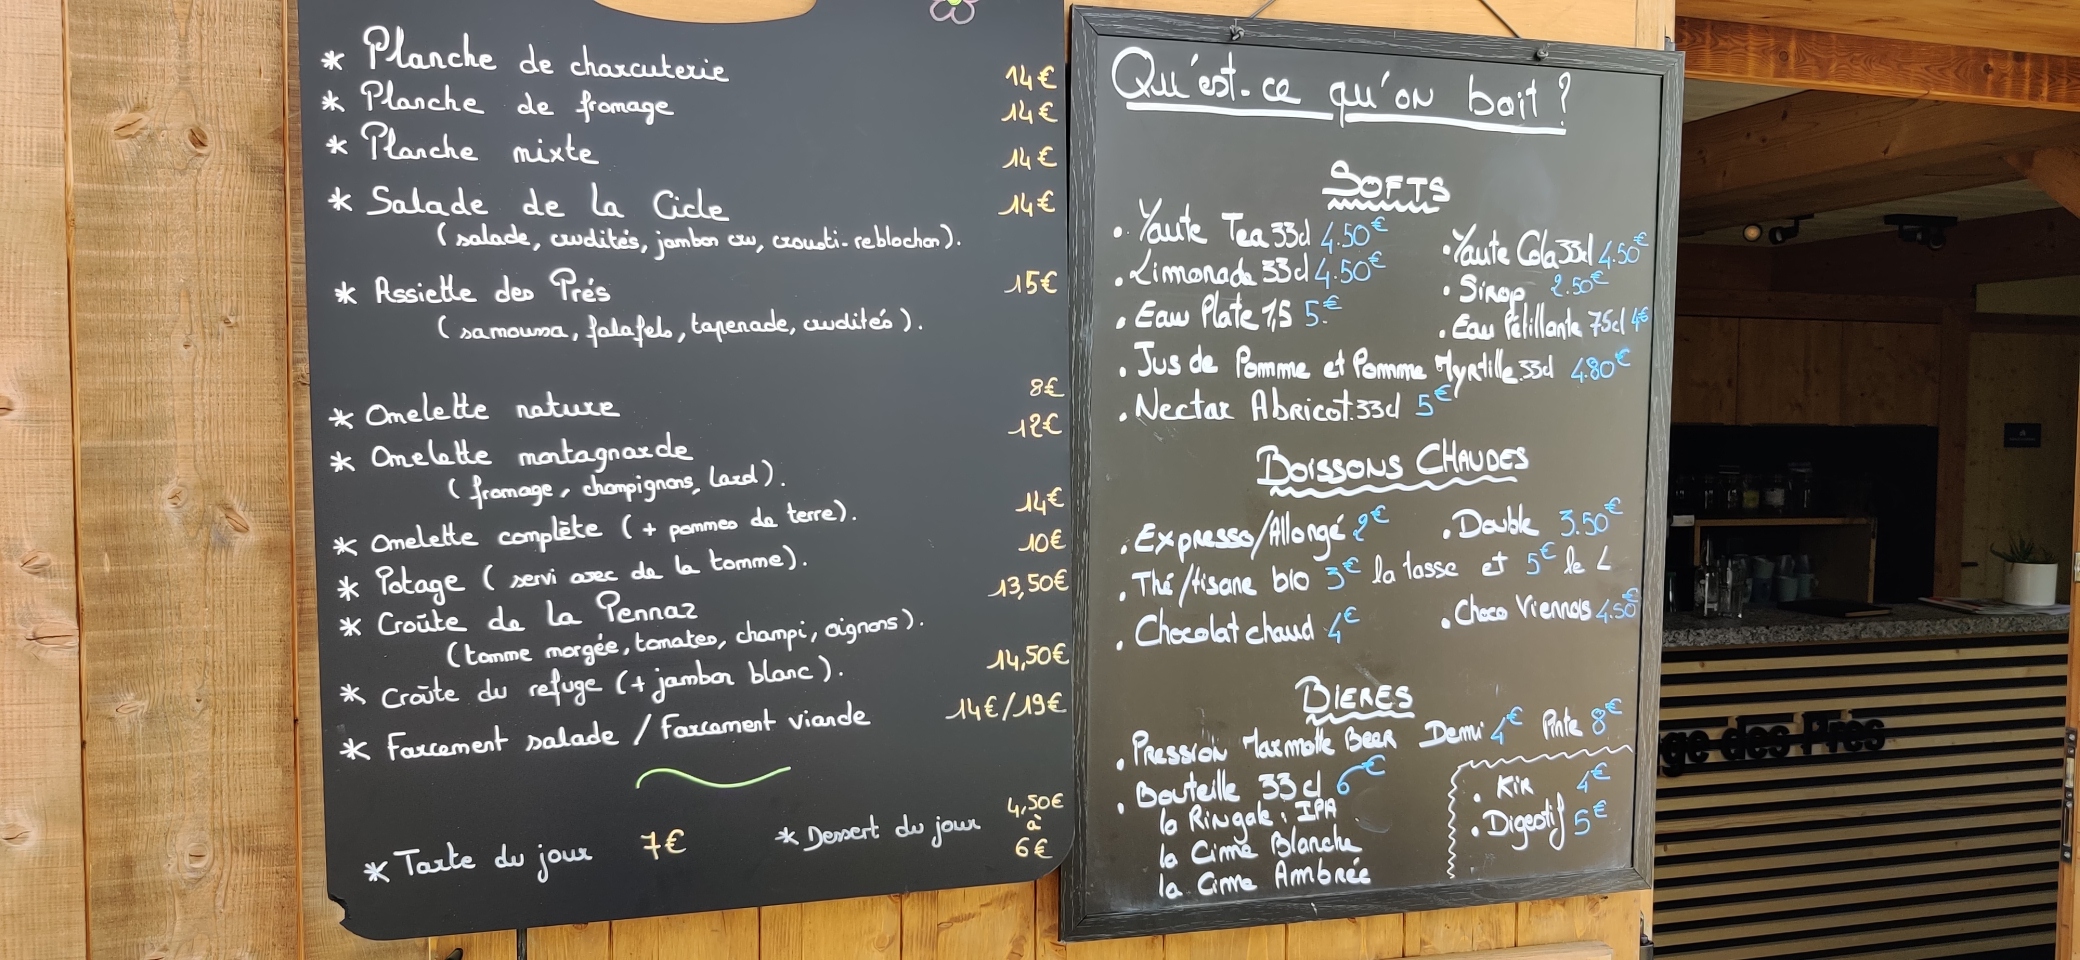 * Planche de charcuterie 14€
* Planche de fromage 14€
* Planche mixte 14€
* Salade de la Cicle 14€
( salade, crudités, jambon cru, crousti-reblochon ).
* Assiette des Prés 15€
( samoussa, falafels, tapenade, crudités ).
* Omelette nature 8€
* Omelette montagnarde 12€
( fromage, champignons, lard ).
* Omelette complète ( + pommes de terre ). 14€
* Potage ( servi avec de la tomme ). 10€
* Croûte de la Pennaz 13,50€
( tomme morgée, tomates, champi, oignons ).
* Croûte du refuge ( + jambon blanc ). 14,50€
* Farcement salade / Farcement viande 14€/19€
* Tarte du jour 7€ * Dessert du jour 4,50€ à 6€
Qu'est-ce qu'on boit ?
SOFTS
. Yaute Tea 33cl 4.50€ . Yaute Cola 33cl 4.50€
. Limonade 33cl 4.50€ . Sirop 2.50€
. Eau Plate 1,5 5.€ . Eau Pétillante 75cl 4€
. Jus de Pomme et Pomme Myrtille 33cl 4.80€
. Nectar Abricot 33cl 5€
BOISSONS CHAUDES
. Expresso/Allongé 2€ . Double 3.50€
. Thé/tisane bio 3€ la tasse et 5€ le L
. Chocolat chaud 4€ . Choco Viennois 4.50€
BIERES
. PRESSION Marmotte BEER Demi 4€ Pinte 8€
. Bouteille 33cl 6€
la Ringale : IPA
la Cime Blanche
la Cime Ambrée
. KIR 4€
. Digestif 5€
ge des Prés